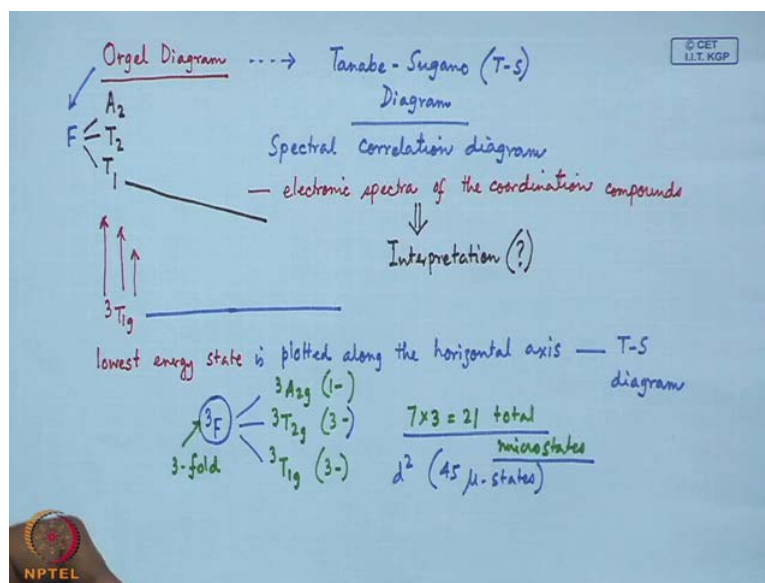 Orgel Diagram ----> Tanabe-Sugano (T-S)
Diagram
© CET
I.I.T. KGP
A₂
F T₂
T₁
Spectral correlation diagram
— electronic spectra of the coordination compounds
⇓
Interpretation (?)
³T₁g
lowest energy state is plotted along the horizontal axis — T-S
diagram
³A₂g (1-)
³F ³T₂g (3-)
³T₁g (3-)
3-fold
7×3 = 21 total
microstates
d² (45 μ-states)
NPTEL